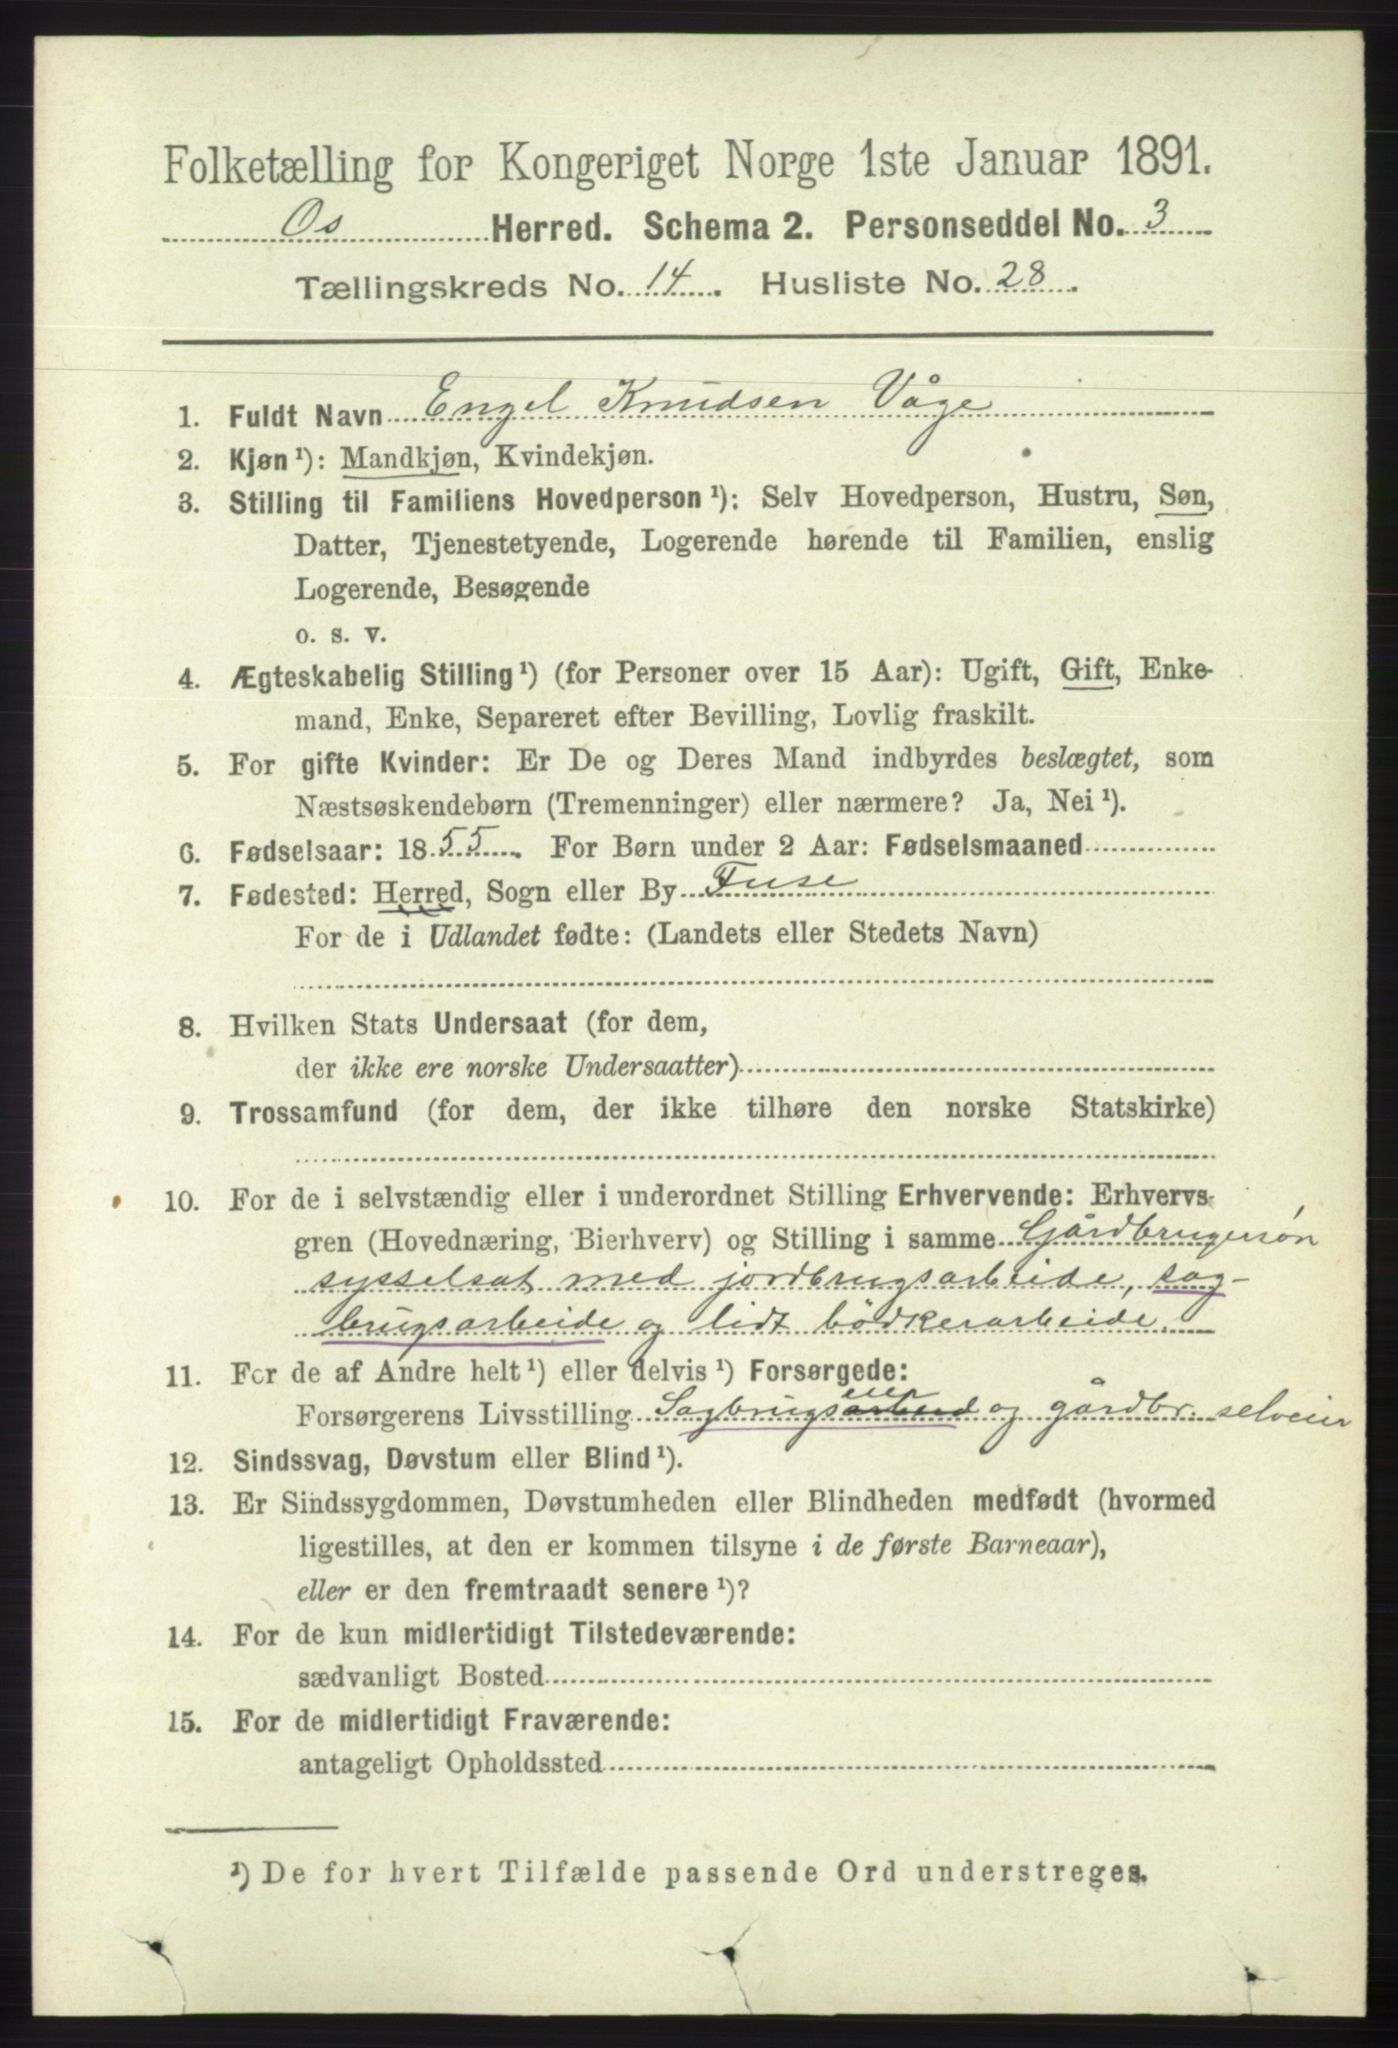 Folketælling for Kongeriget Norge 1ste Januar 1891.
Os Herred. Schema 2. Personseddel No. 3
Tællingskreds No. 14. Husliste No. 28.
1. Fuldt Navn Engel Knudsen Våge
2. Kjøn ¹): Mandkjøn, Kvindekjøn.
3. Stilling til Familiens Hovedperson ¹): Selv Hovedperson, Hustru, Søn,
Datter, Tjenestetyende, Logerende hørende til Familien, enslig
Logerende, Besøgende
o. s. v.
4. Ægteskabelig Stilling ¹) (for Personer over 15 Aar): Ugift, Gift, Enke-
mand, Enke, Separeret efter Bevilling, Lovlig fraskilt.
5. For gifte Kvinder: Er De og Deres Mand indbyrdes beslægtet, som
Næstsøskendebørn (Tremenninger) eller nærmere? Ja, Nei ¹).
6. Fødselsaar: 1855. For Børn under 2 Aar: Fødselsmaaned
7. Fødested: Herred, Sogn eller By Fuse
For de i Udlandet fødte: (Landets eller Stedets Navn)
8. Hvilken Stats Undersaat (for dem,
der ikke ere norske Undersaatter)
9. Trossamfund (for dem, der ikke tilhøre den norske Statskirke)
10. For de i selvstændig eller i underordnet Stilling Erhvervende: Erhvervs-
gren (Hovednæring, Bierhverv) og Stilling i samme Gårdbrugersøn
sysselsat med jordbrugsarbeide, sag-
brugsarbeide og lidt bödkerarbeide.
11. For de af Andre helt ¹) eller delvis ¹) Forsørgede:
Forsørgerens Livsstilling Sagbrugseier og gårdbr. selveier
12. Sindssvag, Døvstum eller Blind ¹).
13. Er Sindssygdommen, Døvstumheden eller Blindheden medfødt (hvormed
ligestilles, at den er kommen tilsyne i de første Barneaar),
eller er den fremtraadt senere ¹)?
14. For de kun midlertidigt Tilstedeværende:
sædvanligt Bosted
15. For de midlertidigt Fraværende:
antageligt Opholdssted
¹) De for hvert Tilfælde passende Ord understreges.